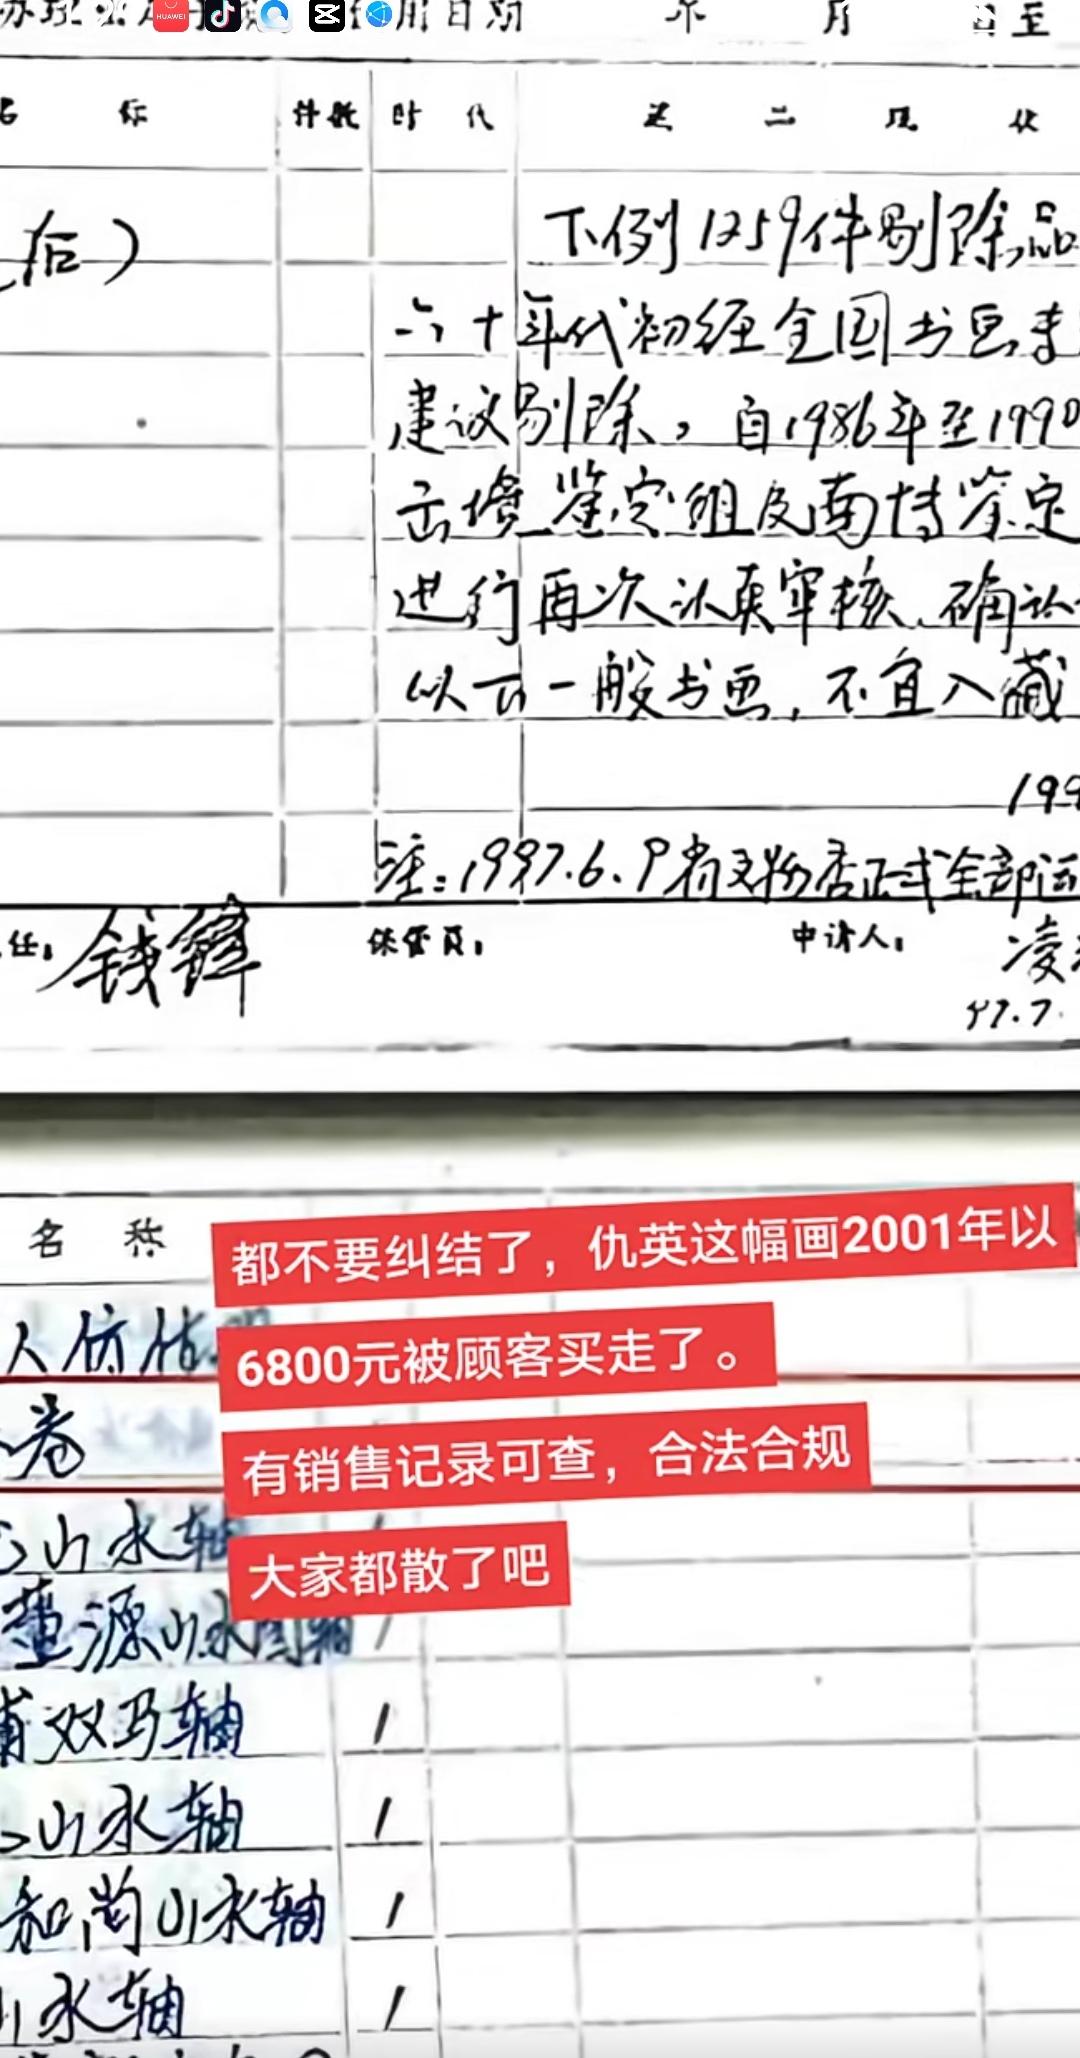 用日期 年 月 日至
名 称 件数 时 代 送 二 现 状
后）
下例1259件剔除品
六十年代初经全国书画
建议剔除，自1986年至1990
出境鉴定组及南博鉴定
进行再次认真审核、确认
以云一般书画，不宜入藏
199
注：1997.6.9省文物店正式全部运
任： 钱锋 保管员： 申请人： 凌
97.7.
名 称
都不要纠结了，仇英这幅画2001年以
6800元被顾客买走了。
有销售记录可查，合法合规
大家都散了吧
人仿
卷
山水轴
董源山水图轴 1
双马轴 1
山水轴 1
和尚山水轴 1
山水轴 1